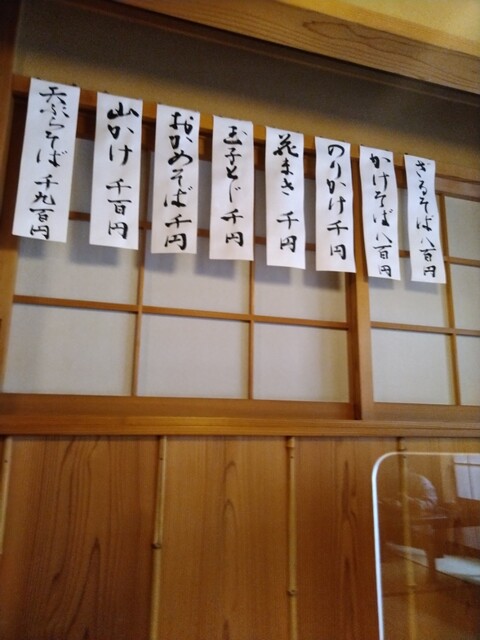 ざるそば 八百円
かけそば 八百円
のりかけ 千円
花まき 千円
玉子とじ 千円
おかめそば 千円
山かけ 千百円
天ぷらそば 千九百円